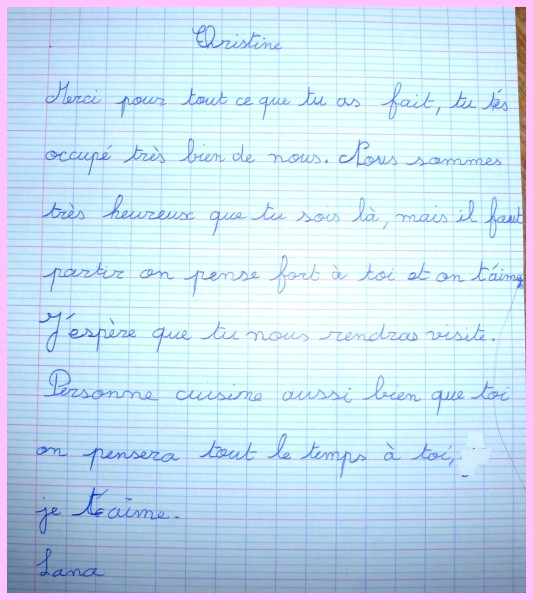 Christine
Merci pour tout ce que tu as fait, tu t'és
occupé très bien de nous. Nous sommes
très heureux que tu sois là, mais il faut
partir on pense fort à toi et on t'aime
J'éspère que tu nous rendras visite.
Personne cuisine aussi bien que toi
on pensera tout le temps à toi,
je t'aime.
Lana